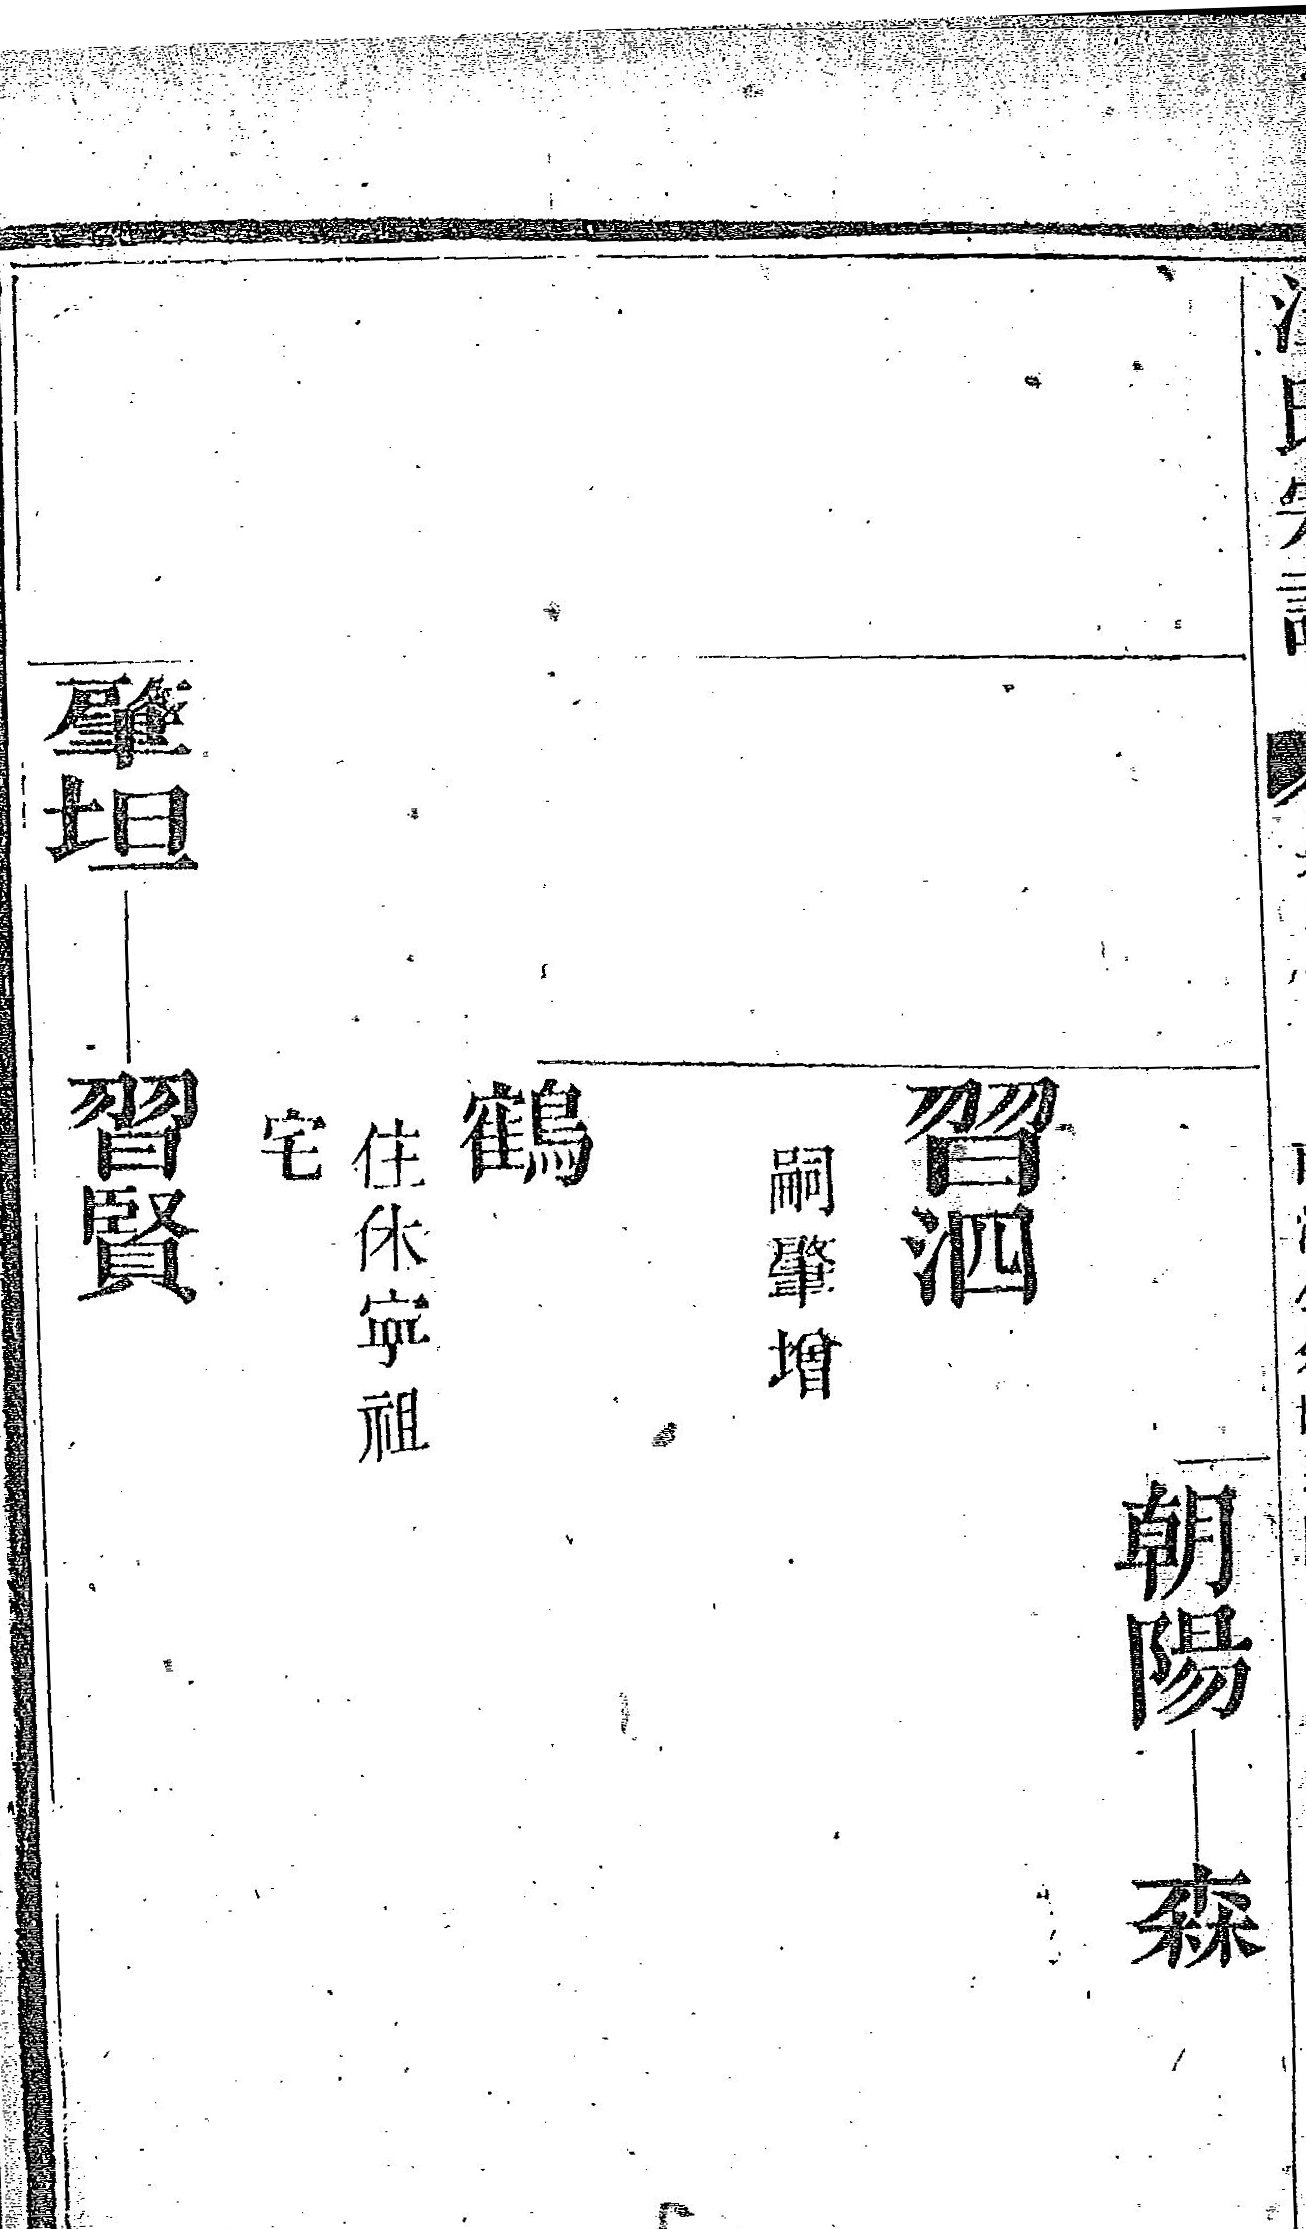 朝陽
森
習泗
嗣肇增
鶴
住休寧祖
宅
肇坦
習賢